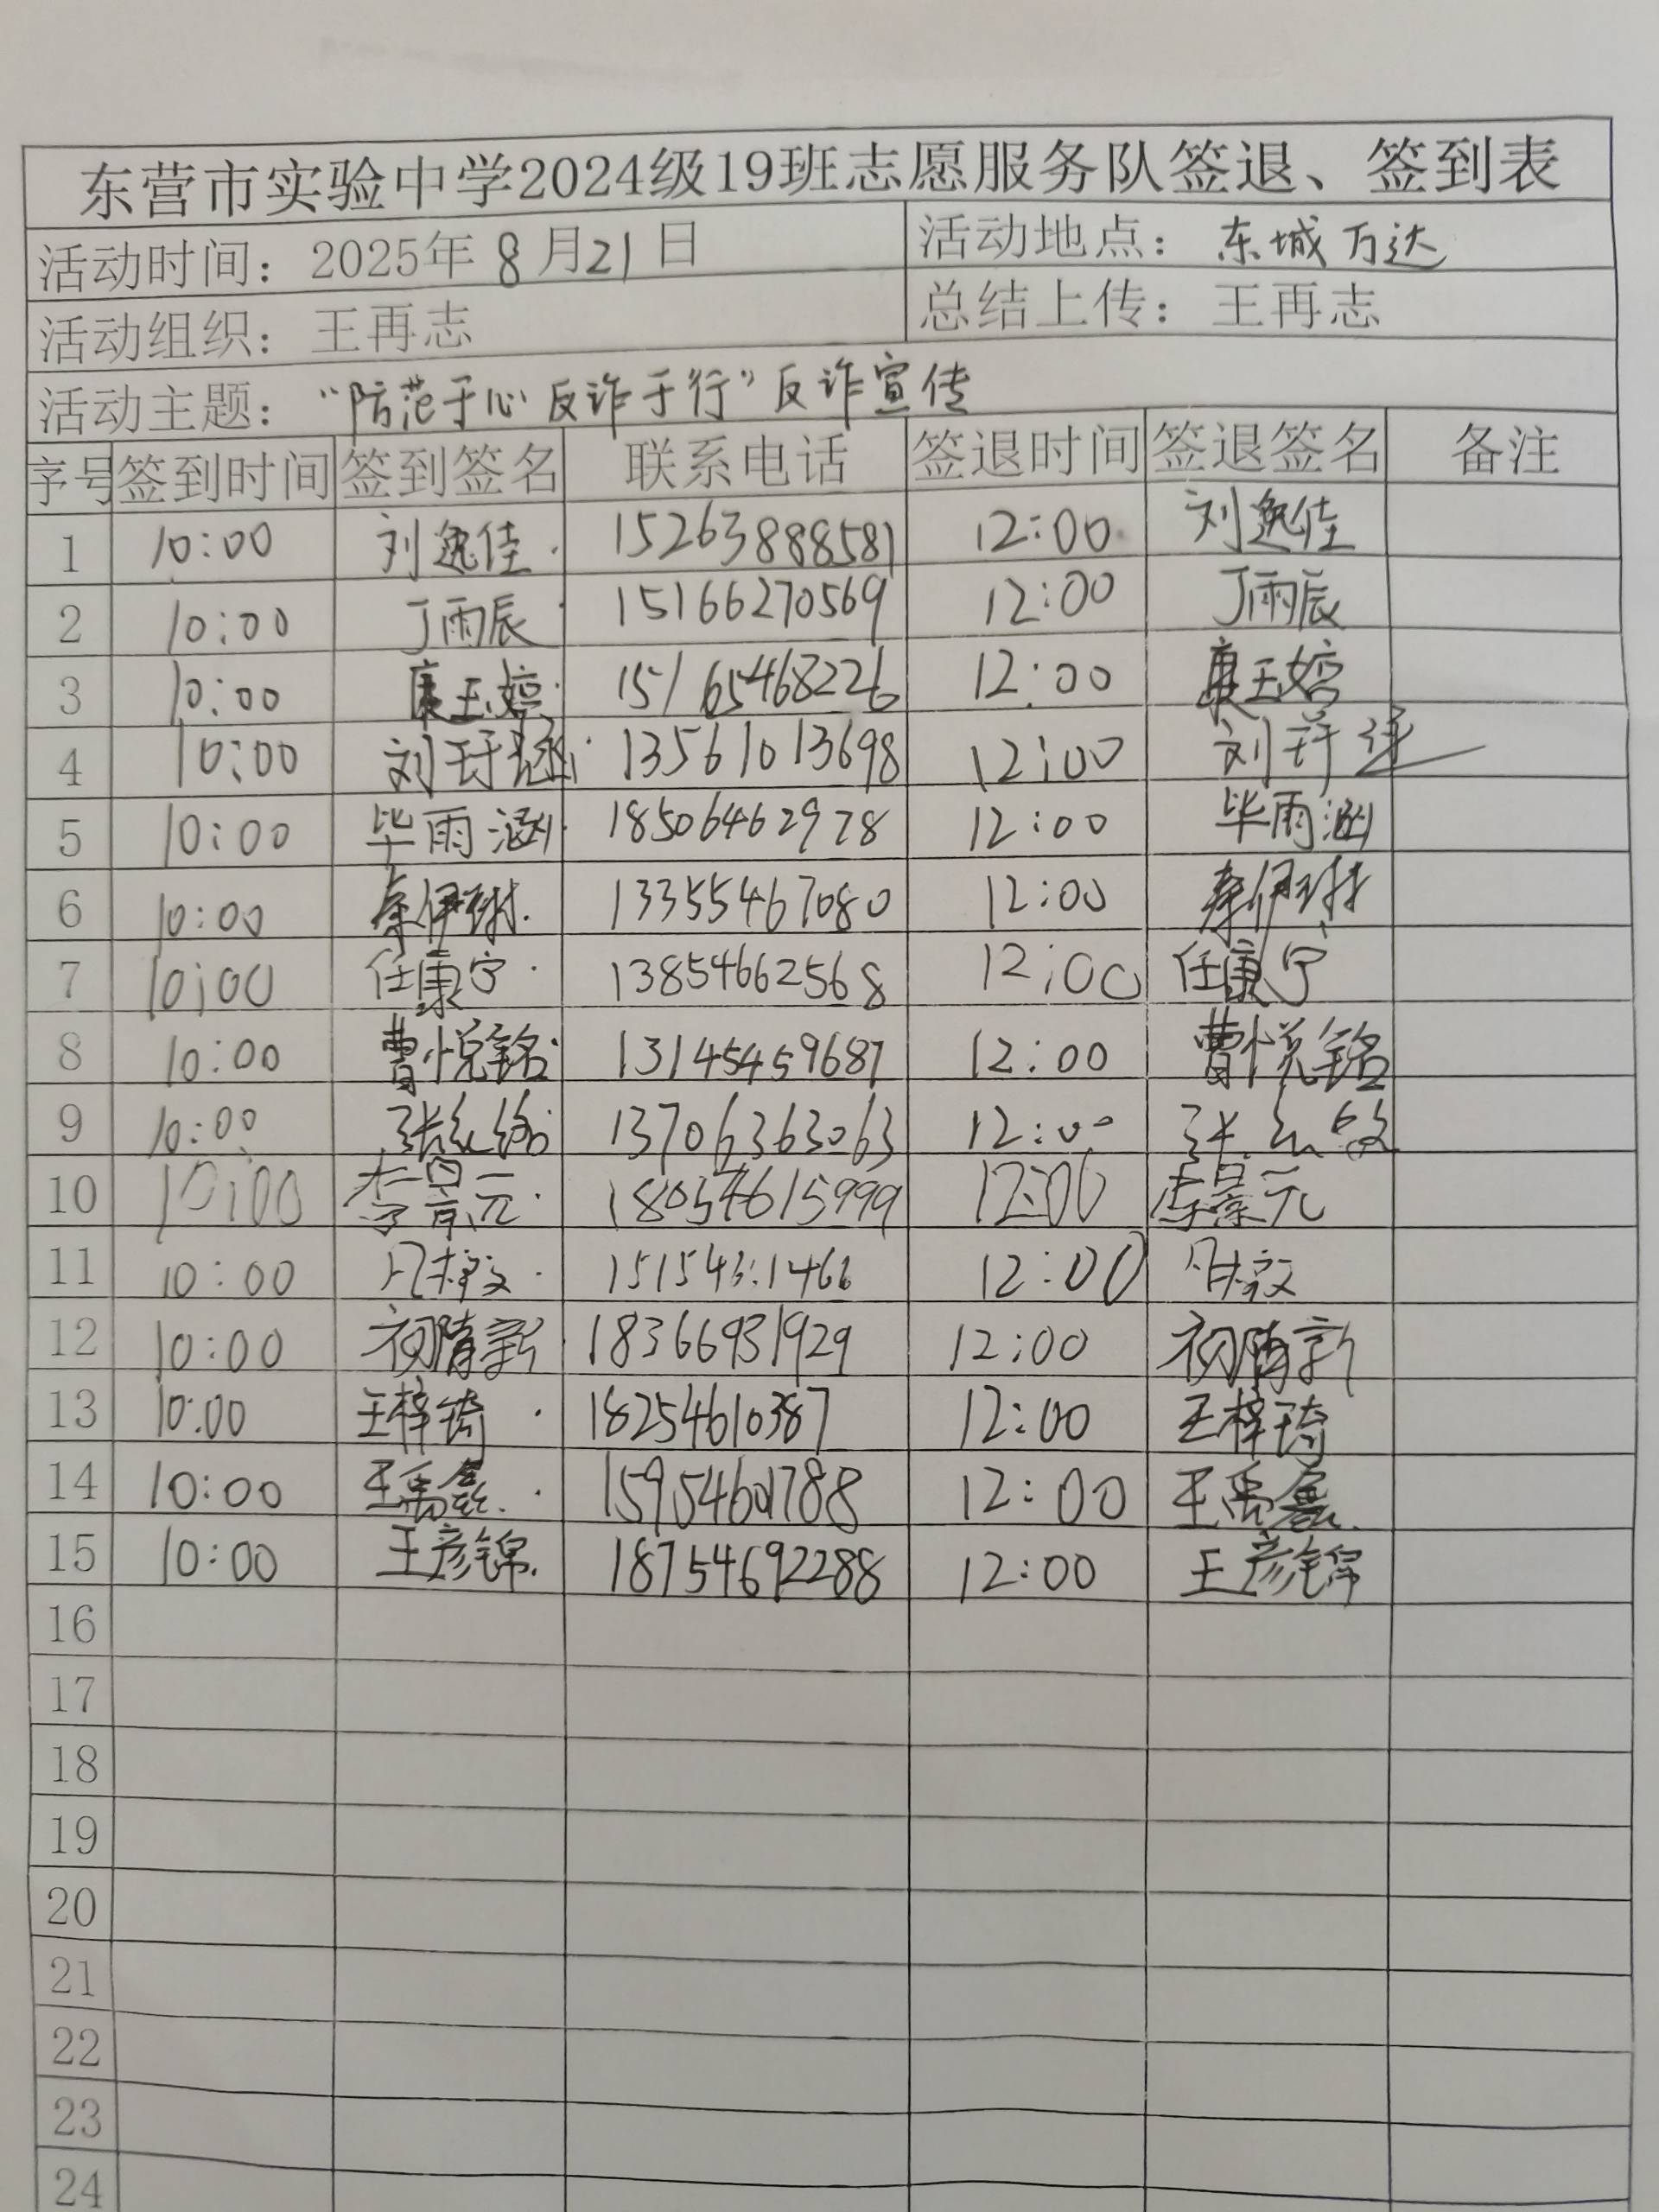 东营市实验中学2024级19班志愿服务队签退、签到表
活动时间：2025年8月21日 活动地点：东城万达
活动组织：王再志 总结上传：王再志
活动主题：“防范于心 反诈于行”反诈宣传
序号 签到时间 签到签名 联系电话 签退时间 签退签名 备注
1 10:00 刘逸佳 15263888581 12:00 刘逸佳
2 10:00 丁雨辰 15166270569 12:00 丁雨辰
3 10:00 康玉婷 15165468226 12:00 康玉婷
4 10:00 刘玗涵 13561013698 12:00 刘玗涵
5 10:00 毕雨涵 18506462978 12:00 毕雨涵
6 10:00 秦伊琳 13355467080 12:00 秦伊琳
7 10:00 任康宁 13854662568 12:00 任康宁
8 10:00 曹悦铭 13145459687 12:00 曹悦铭
9 10:00 张 13706363063 12:00 张
10 10:00 李景元 18054615999 12:00 李景元
11 10:00 12:00
12 10:00 初隋新 18366931929 12:00 初隋新
13 10:00 王梓琦 18254610387 12:00 王梓琦
14 10:00 王禹鑫 15954601788 12:00 王禹鑫
15 10:00 王彦锦 18754692288 12:00 王彦锦
16
17
18
19
20
21
22
23
24